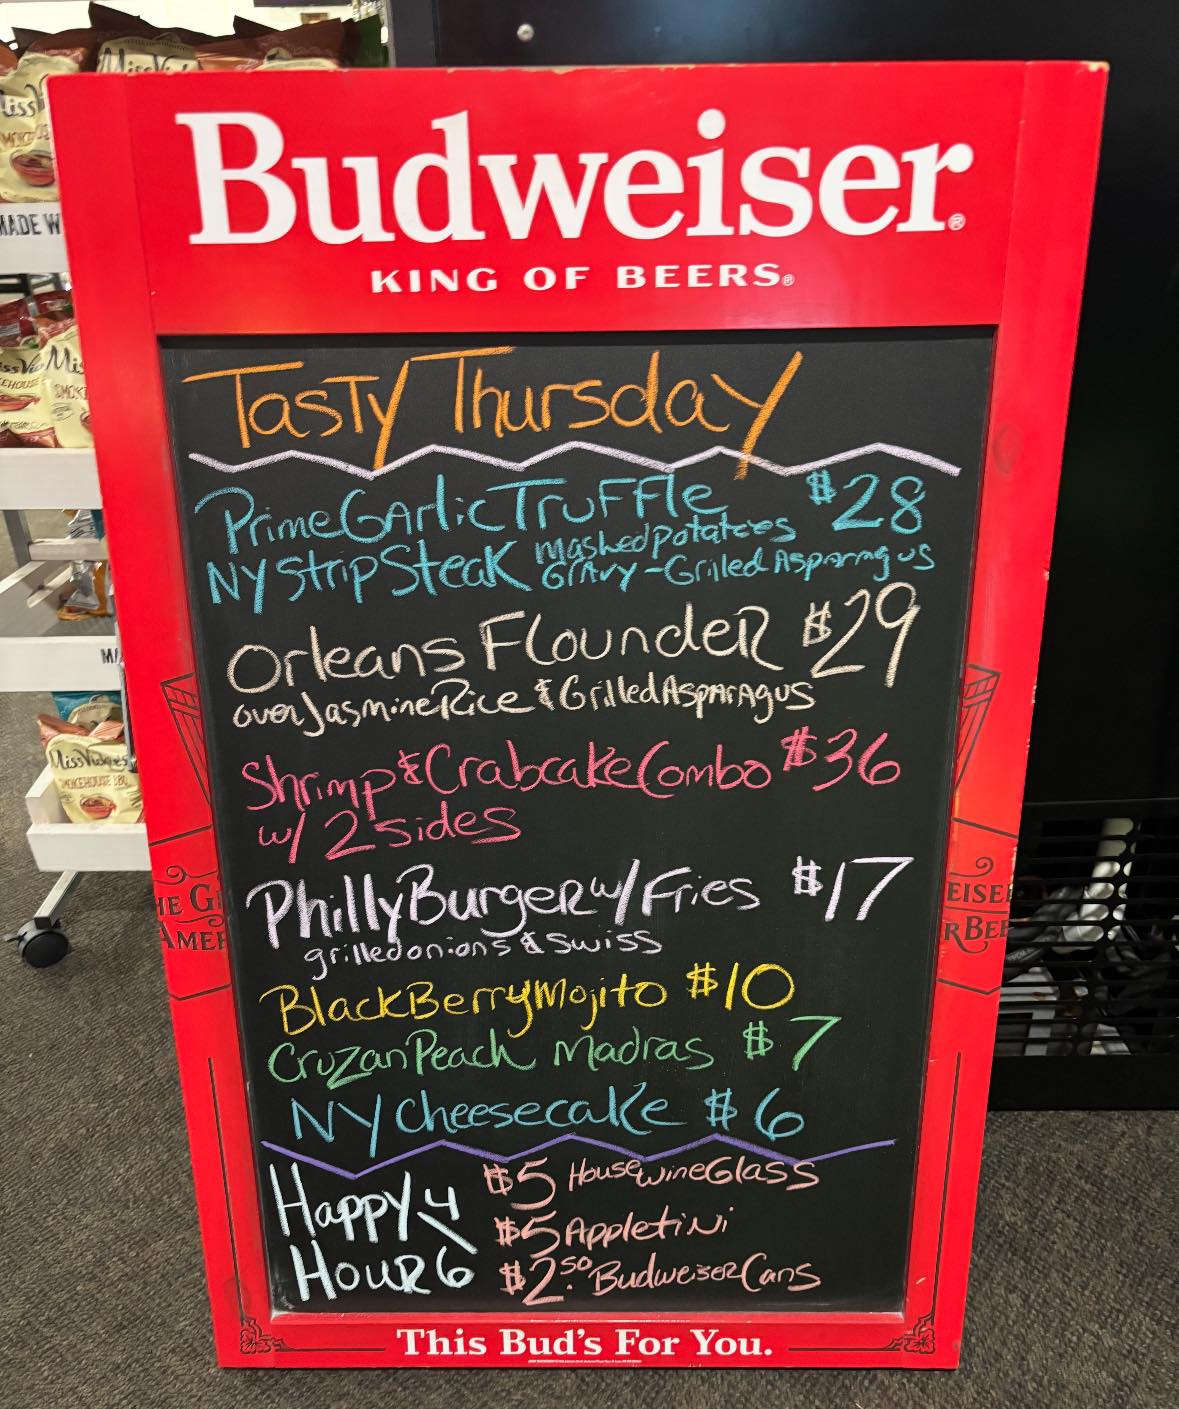 Budweiser®
KING OF BEERS®
Tasty Thursday
Prime Garlic Truffle $28
NY Strip Steak mashed potatoes
Gravy - Grilled Asparagus
Orleans Flounder $29
over Jasmine Rice & Grilled Asparagus
Shrimp & Crabcake Combo $36
w/ 2 sides
Philly Burger w/ Fries $17
grilled onions & Swiss
BlackBerry Mojito $10
Cruzan Peach Madras $7
NY Cheesecake $6
Happy Hour 4\6
$5 House Wine Glass
$5 Appletini
$2.50 Budweiser Cans
This Bud's For You.
Miss Vickie's
SMOKEHOUSE BBQ
MADE W
HE G
AMER
EISER
R BEE